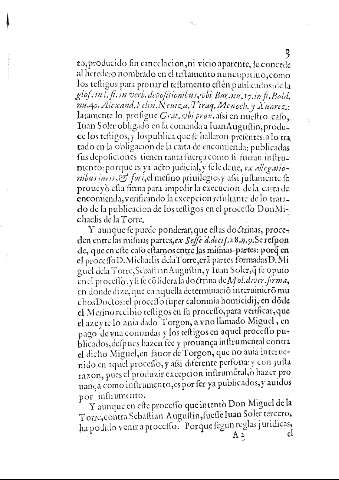 3
to, producido sin cancelacion, ni vicio aparente, se concede
al heredero nombrado en el testamento nuncupatiuo, como
los testigos para prouar el testamento estèn publicados de la
glos. in l. fi. in verb. depositionibus, vbi Bar. nu. 17. in fi. Bald.
nu. 40. Alexand. Felin. Neuiza, Tiraq. Menoch. y Aluarez:
latamente lo prosigue Grat. vbi prox. assi en nuestro caso,
Iuan Soler obligado en la comanda a Iuan Augustin, produ-
ce los testigos, y los publica que se hallaron presentes a lo tra
tado en la obligacion de la carta de encomienda; publicadas
sus deposiciones tienen tanta fuerça como si fueran instru-
mento: porque es ya acto judicial, y fele deue,
el mesmo priuilegio, y assi justamente se
proueyò esta firma para impedir la execucion de la carta de
encomienda, verificando la excepcion resultante de lo trata-
do de la publicacion de los testigos en el processo Don Mi-
chaelis de la Torre.
Y aunque se puede ponderar, que estas doctrinas, proce-
den entre las mismas partes, ex Sesse d. decis. 8. n. 9. Se respon-
de, que en este caso estamos entre las mismas partes: porq̃ en
el processo D. Michaelis de la Torre, erã partes formadas D. Mi
guel de la Torre, Sebastian Augustin, y Iuan Soler, q̃ se opuso
en el processo, y si se cõsidera la doctrina de Mol. de ver. firma,
en donde dize, que en aquella determinaciõ interuinierõ mu
chos Doctos: el processo super calomnia homicidij, en dõde
el Merino recibio testigos en su processo, para verificar, que
el azeyte lo auia dado Torgon, a vno llamado Miguel, en
pago de vna comanda y los testigos en aquel processo pu-
blicados, despues hazen fee y prouança instrumental contra
el dicho Miguel, en fauor de Torgon, que no auia interue-
nido en aquel processo, y assi diferente persona: y con justa
razon, pues el produzir excepcion instrumẽtal, ò hazer pro
uança como instrumento, es por ser ya publicados, y auidos
por instrumento.
Y aunque en este processo que intentò Don Miguel de la
Torre, contra Sebastian Augustin, fuesse Iuan Soler tercero,
ha podido venir a processo. Porque segun reglas juridicas,
A 3 el